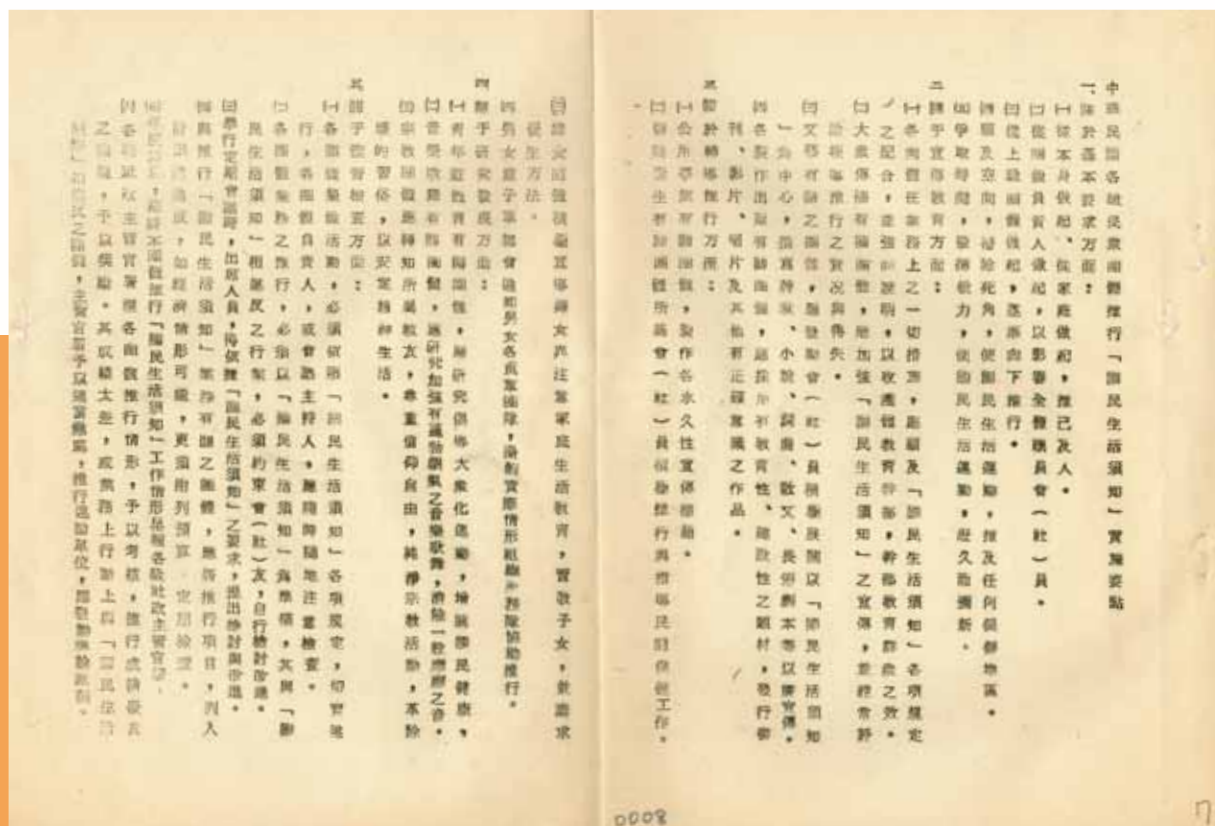 中華民國各級民眾團體推行「國民生活須知」實施要點
一、關於基本要求方面：
㈠從本身做起、從家庭做起，推己及人。
㈡從團體負責人做起，以影響全體職員會（社）員。
㈢從上級團體做起，逐漸向下推行。
㈣顧及空間，掃除死角，使國民生活運動，推及任何偏僻地區。
㈤爭取時間，發揮效力，使國民生活運動，歷久彌新。
二、關于宣傳教育方面：
㈠各團體在業務上之一切措施，應顧及「國民生活須知」各項規定
之配合，並強調說明，以收團體教育幹部，幹部教育群眾之效。
㈡大眾傳播有關團體，應加強「國民生活須知」之宣傳，並經常評
論報導推行之實況與得失。
㈢文藝有關之團體，應發動會（社）員積極展開以「國民生活須知
」為中心，撰寫詩歌、小說、詞曲、散文、長俗劇本等以廣宣傳。
㈣各製作出版有關團體，應採用有教育性、建設性之題材，發行書
刊、影片、唱片及其他有正確意識之作品。
三、關於輔導推行方面：
㈠公用事業有關團體，製作各永久性宣傳標語。
㈡醫藥衛生有關團體所屬會（社）員積極推行與指導民間保健工作。
㈢婦女團體積極宣導婦女共注意家庭生活教育，管教子女，並講求
衛生方法。
㈣男女童子軍總會通知男女各童軍團隊，斟酌實際情形組織服務隊協助推行。
四、關于研究發展方面：
㈠青年體育有關團體，應研究倡導大眾化運動，增進國民健康。
㈡音樂歌舞有關團體，應研究加強有益社會風氣之音樂歌舞，消除一般靡靡之音。
㈢宗教團體應轉知所屬教友，尊重信仰自由，純淨宗教活動，革除
壞的習俗，以安定精神生活。
五、關于督導檢查方面：
㈠各團體集會活動，必須依照「國民生活須知」各項規定，切實進
行，各團體負責人，或會議主持人，應隨時隨地注意檢查。
㈡各團體業務之推行，必須以「國民生活須知」為準繩，其與「國
民生活須知」相違反之行為，必須約束會（社）友，自行檢討改進。
㈢舉行定期會議時，出席人員，得依據「國民生活須知」之要求，提出檢討與改進。
㈣與推行「國民生活須知」業務有關之團體，應將推行項目，列入
計畫，如經濟情形可能，更須增列預算，定期檢查。
推行「國民生活須知」工作情形呈報各級社政主管官署。
㈥各級社政主管官署應各團體推行情形，予以考核，推行成績優良
之團體，予以獎勵。其成績太差，或業務上行動上與「國民生活
須知」相違反之團體，主管官署予以適當懲處，
0008